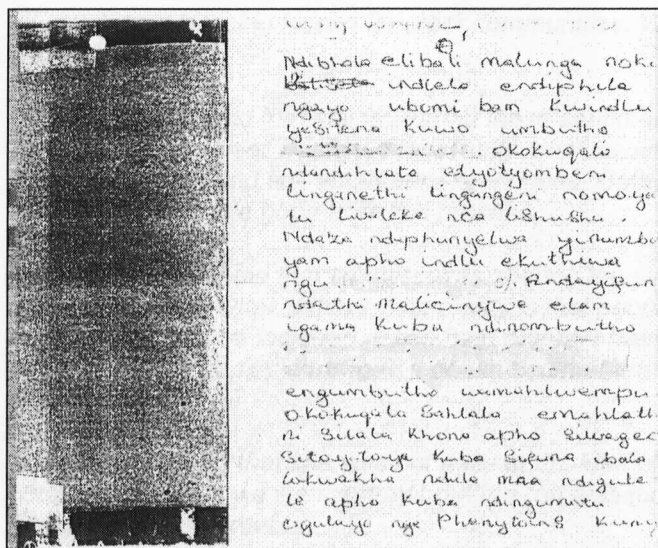 Ndibhala elibali malunga noku
indlela endiphila
ngayo ubomi bam Kwindlu
yesitena Kuwo umbutho
okokuqala
ndandihlala etyotyombeni
linganethi lingangeni nomoya
tu livaleke nca lishushu.
Ndaza ndaphunyelwa yinombo
yam apho indlu ekuthiwa
ngu
ndathi Malicinywe elam
igama Kuba ndinombutho
engumbutho wamahlwempu
okokuqala Sahlala emahlath
ni Silala Khona apho Siwagec
Sitoyitoya Kuba Sifuna ibala
lokwakha ndula maa ndigule
le apho Kuba ndingumntu
ogulayo nge Phenytoins Kuny